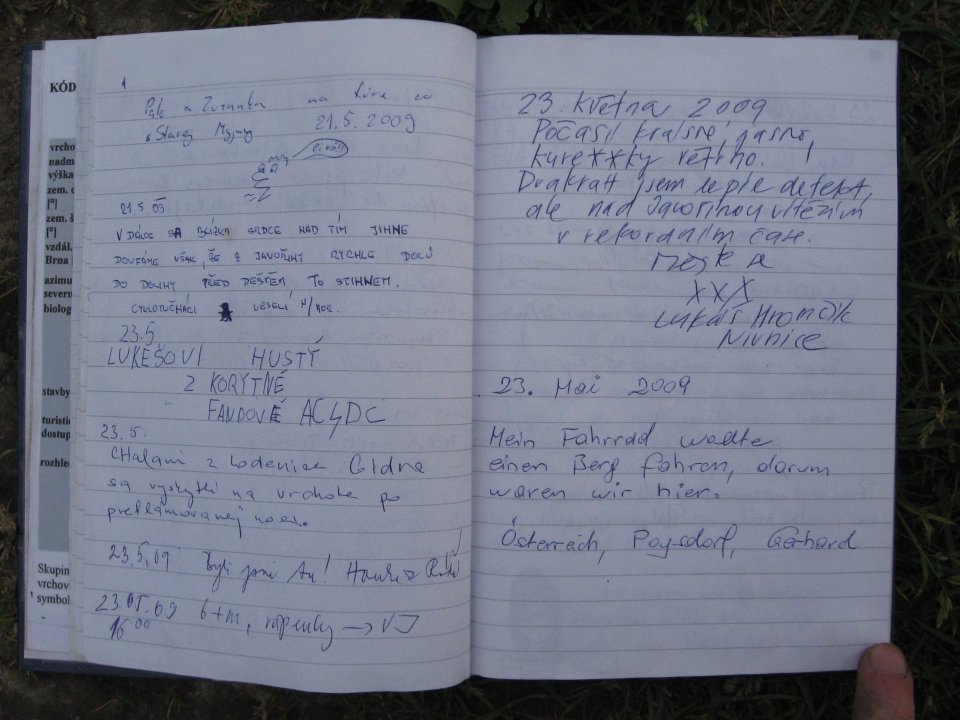 KÓD
vrcho
nadm
výška
zem. d
[°]
zem. š
[°]
vzdál.
Brna
azimu
severn
biolog
stavby
turistic
dostup
rozhle
Skupin
vrchov
symbol
1
a Zuzanka na
21.5.2009
21.5.09
V DÁLCE BLÍZKA SRDCE NAD TÍM JIHNE
DOUFÁME VŠAK, ŽE Z JAVOŘINY RYCHLE DOLŮ
DO DOLINY PŘED DEŠTĚM TO STIHNEM.
VESELÍ N/MOR.
23.5
LUKEŠOVI HUSTÝ
Z KORYTNÉ
FANDOVÉ AC⚡DC
23.5.
CHalani z Lodenica
sa vyskytli na vrchole po
prehlámovanej noci.
23.5.09 Byli jsme tu!
23.05.09 6+m, →VJ
16 00
23. Května 2009
Počásil krásné, jasno,
větrno.
jsem lepil defekt,
ale nad Javořinou vítězím
v rekordním čase.
XXX
Lukáš Hromčík
Nivnice
23. Mai 2009
Mein Fahrrad wollte
einen Berg fahren, darum
waren wir hier.
Österreich, Poysdorf, Gerhard